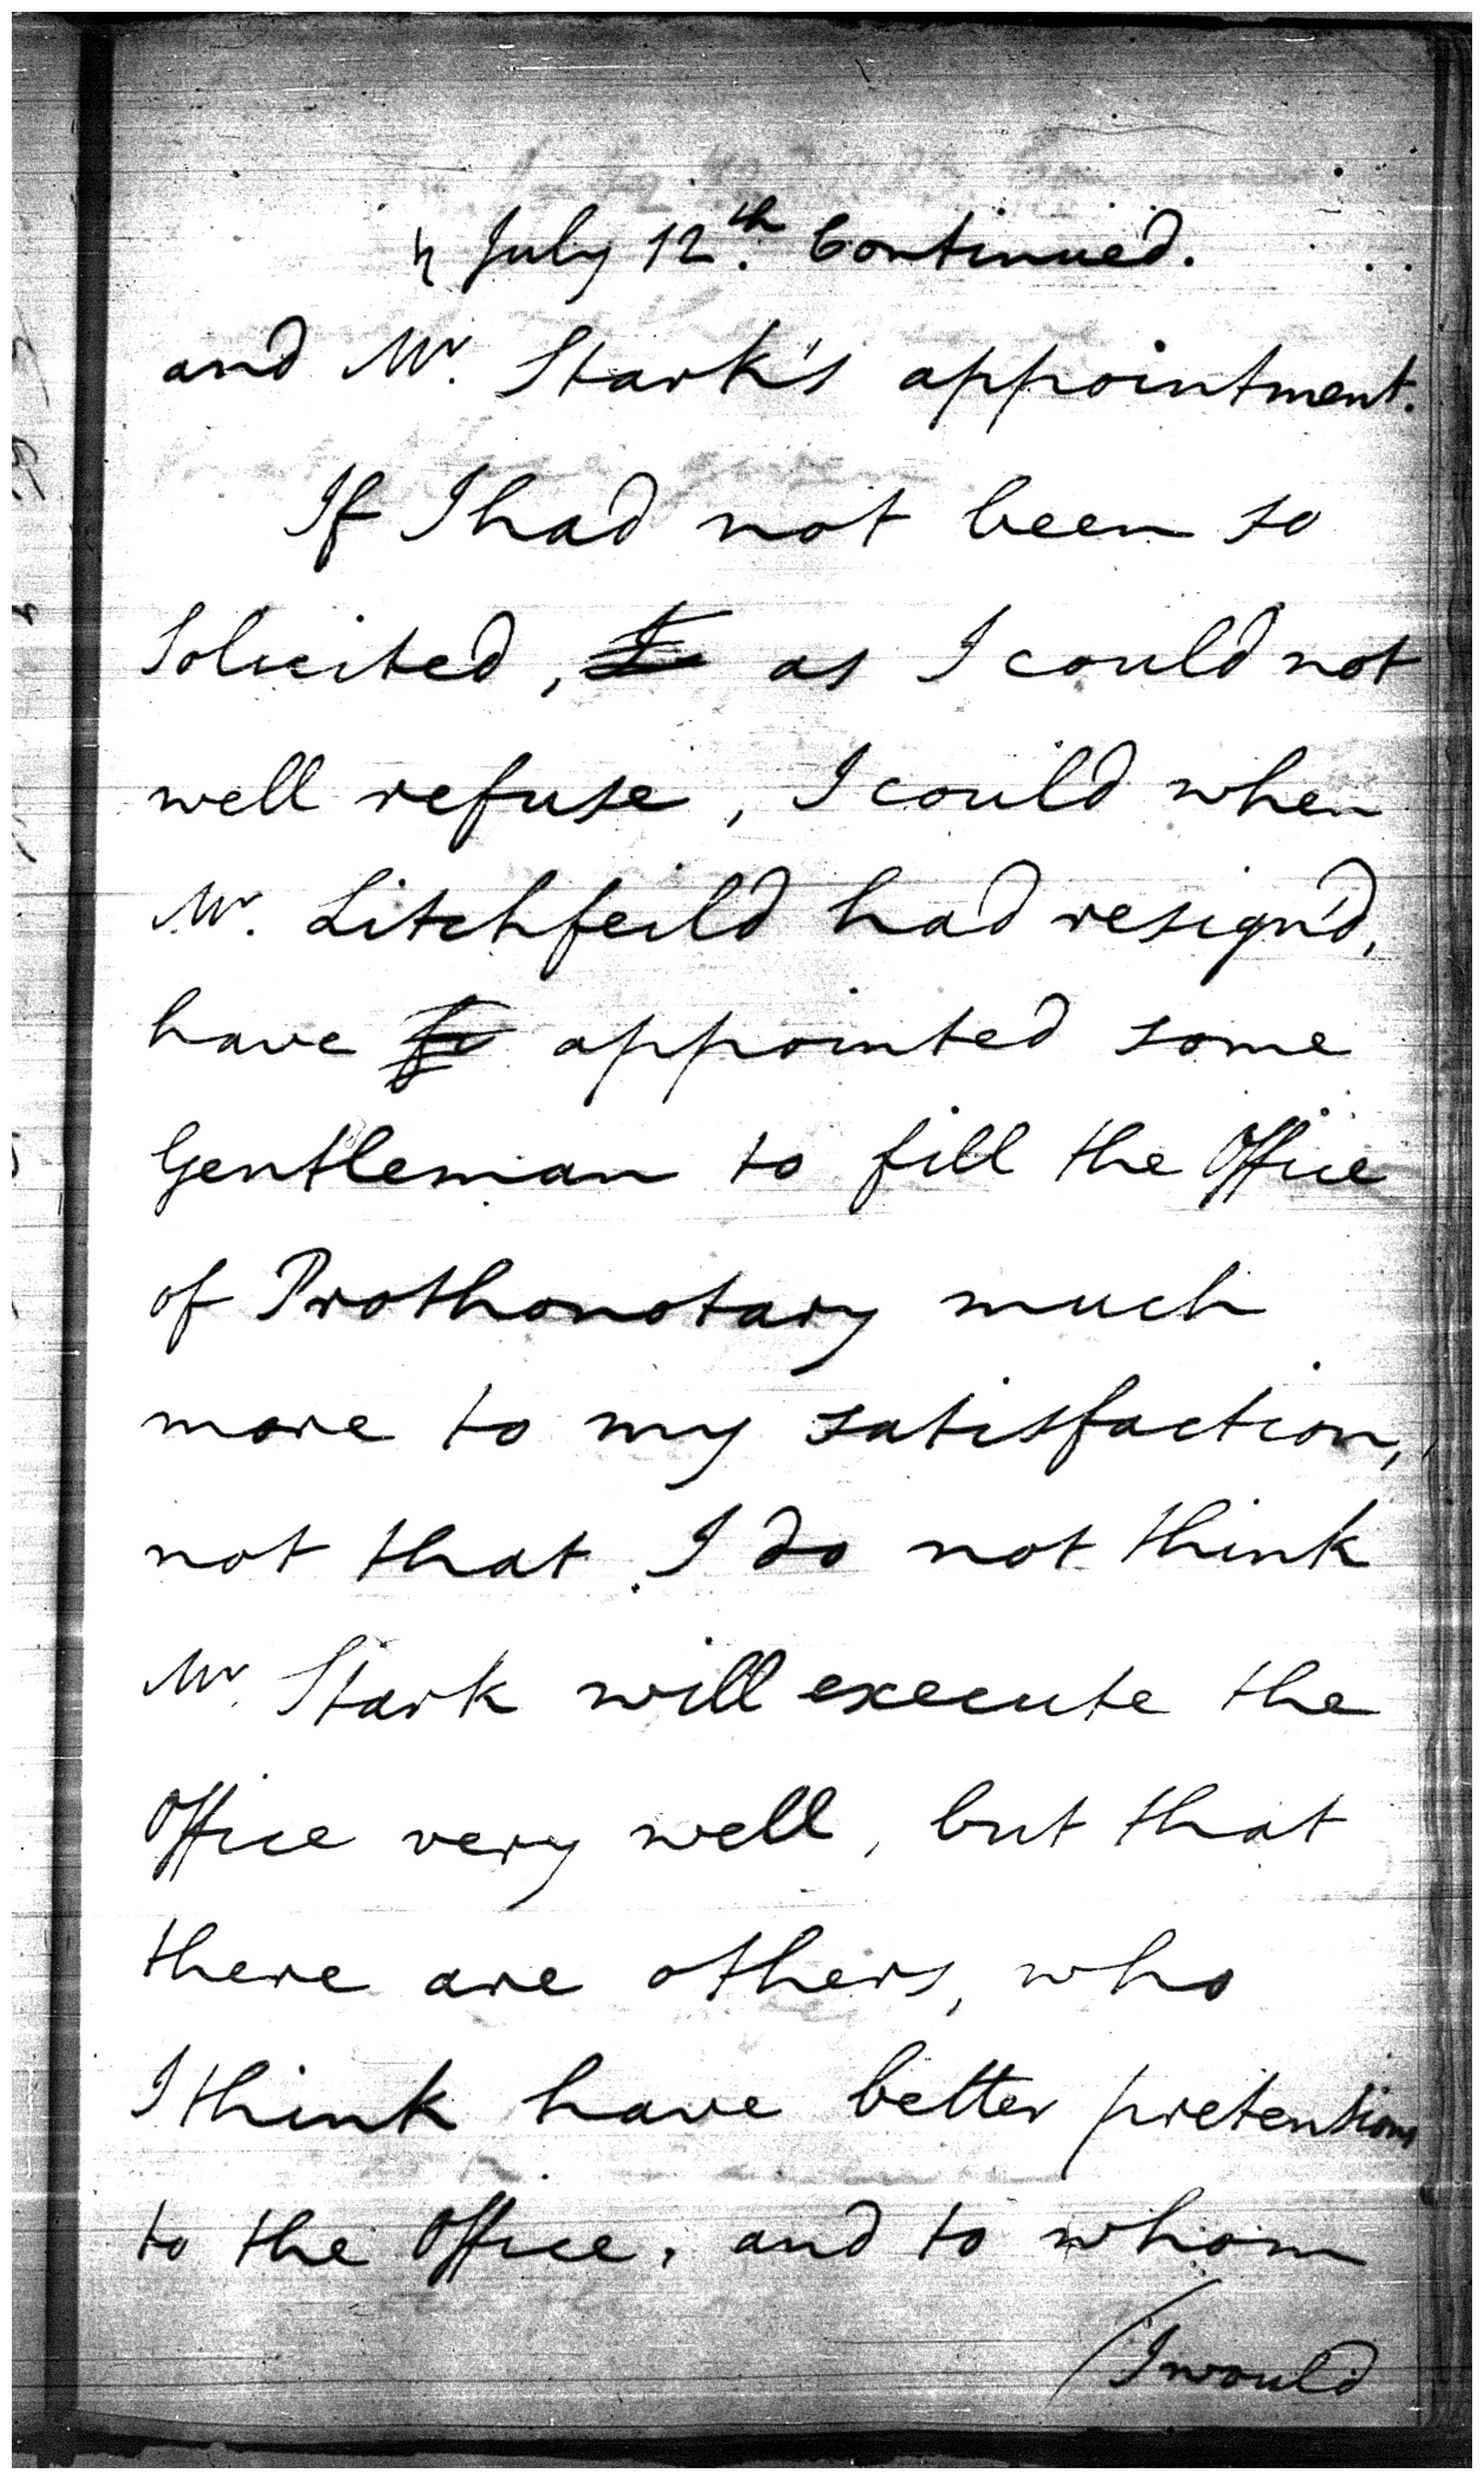 ♄ July 12th. Continued.
and Mr. Stark's appointment.
If I had not been so
Solicited, as I could not
well refuse, I could when
Mr. Litchfeild had resign'd,
have appointed some
Gentleman to fill the Office
of Prothonotary much
more to my satisfaction,
not that I do not think
Mr. Stark will execute the
Office very well, but that
there are others, who
I think have better pretentions
to the Office, and to whom
(I would